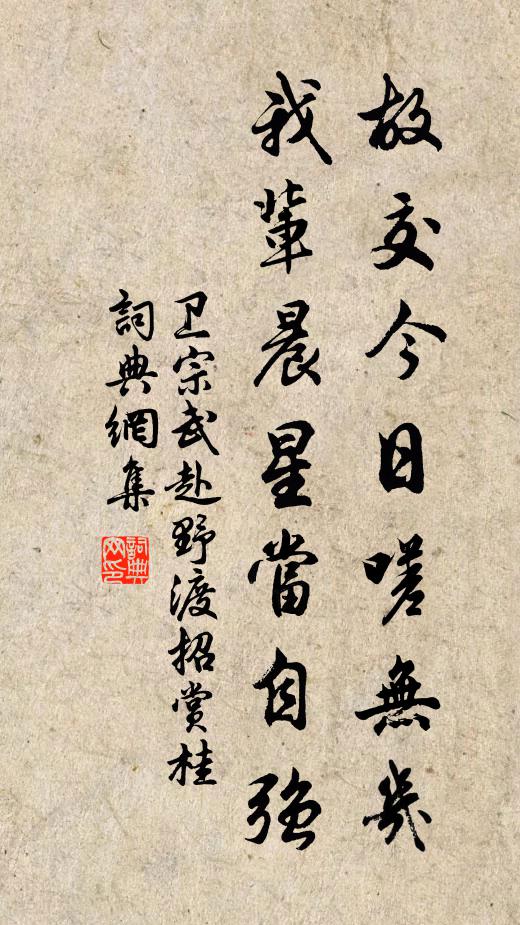 故交今日嗟無幾
我輩晨星當自強
卫宗武赴野渡招賞桂
詞典網集
詞典
网印